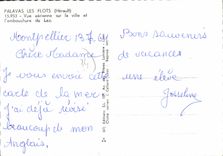 PALAVAS LES FLOTS (Hérault)
Vue aérienne sur la ville et
l'embouchure du Lez.
Montpellier
Chère Madame
Je vous envoie cette
carte de la mer
j'ai déjà révisé
beaucoup de mon
Anglais.
Bons souvenirs
de vacances
une élève
Josseline